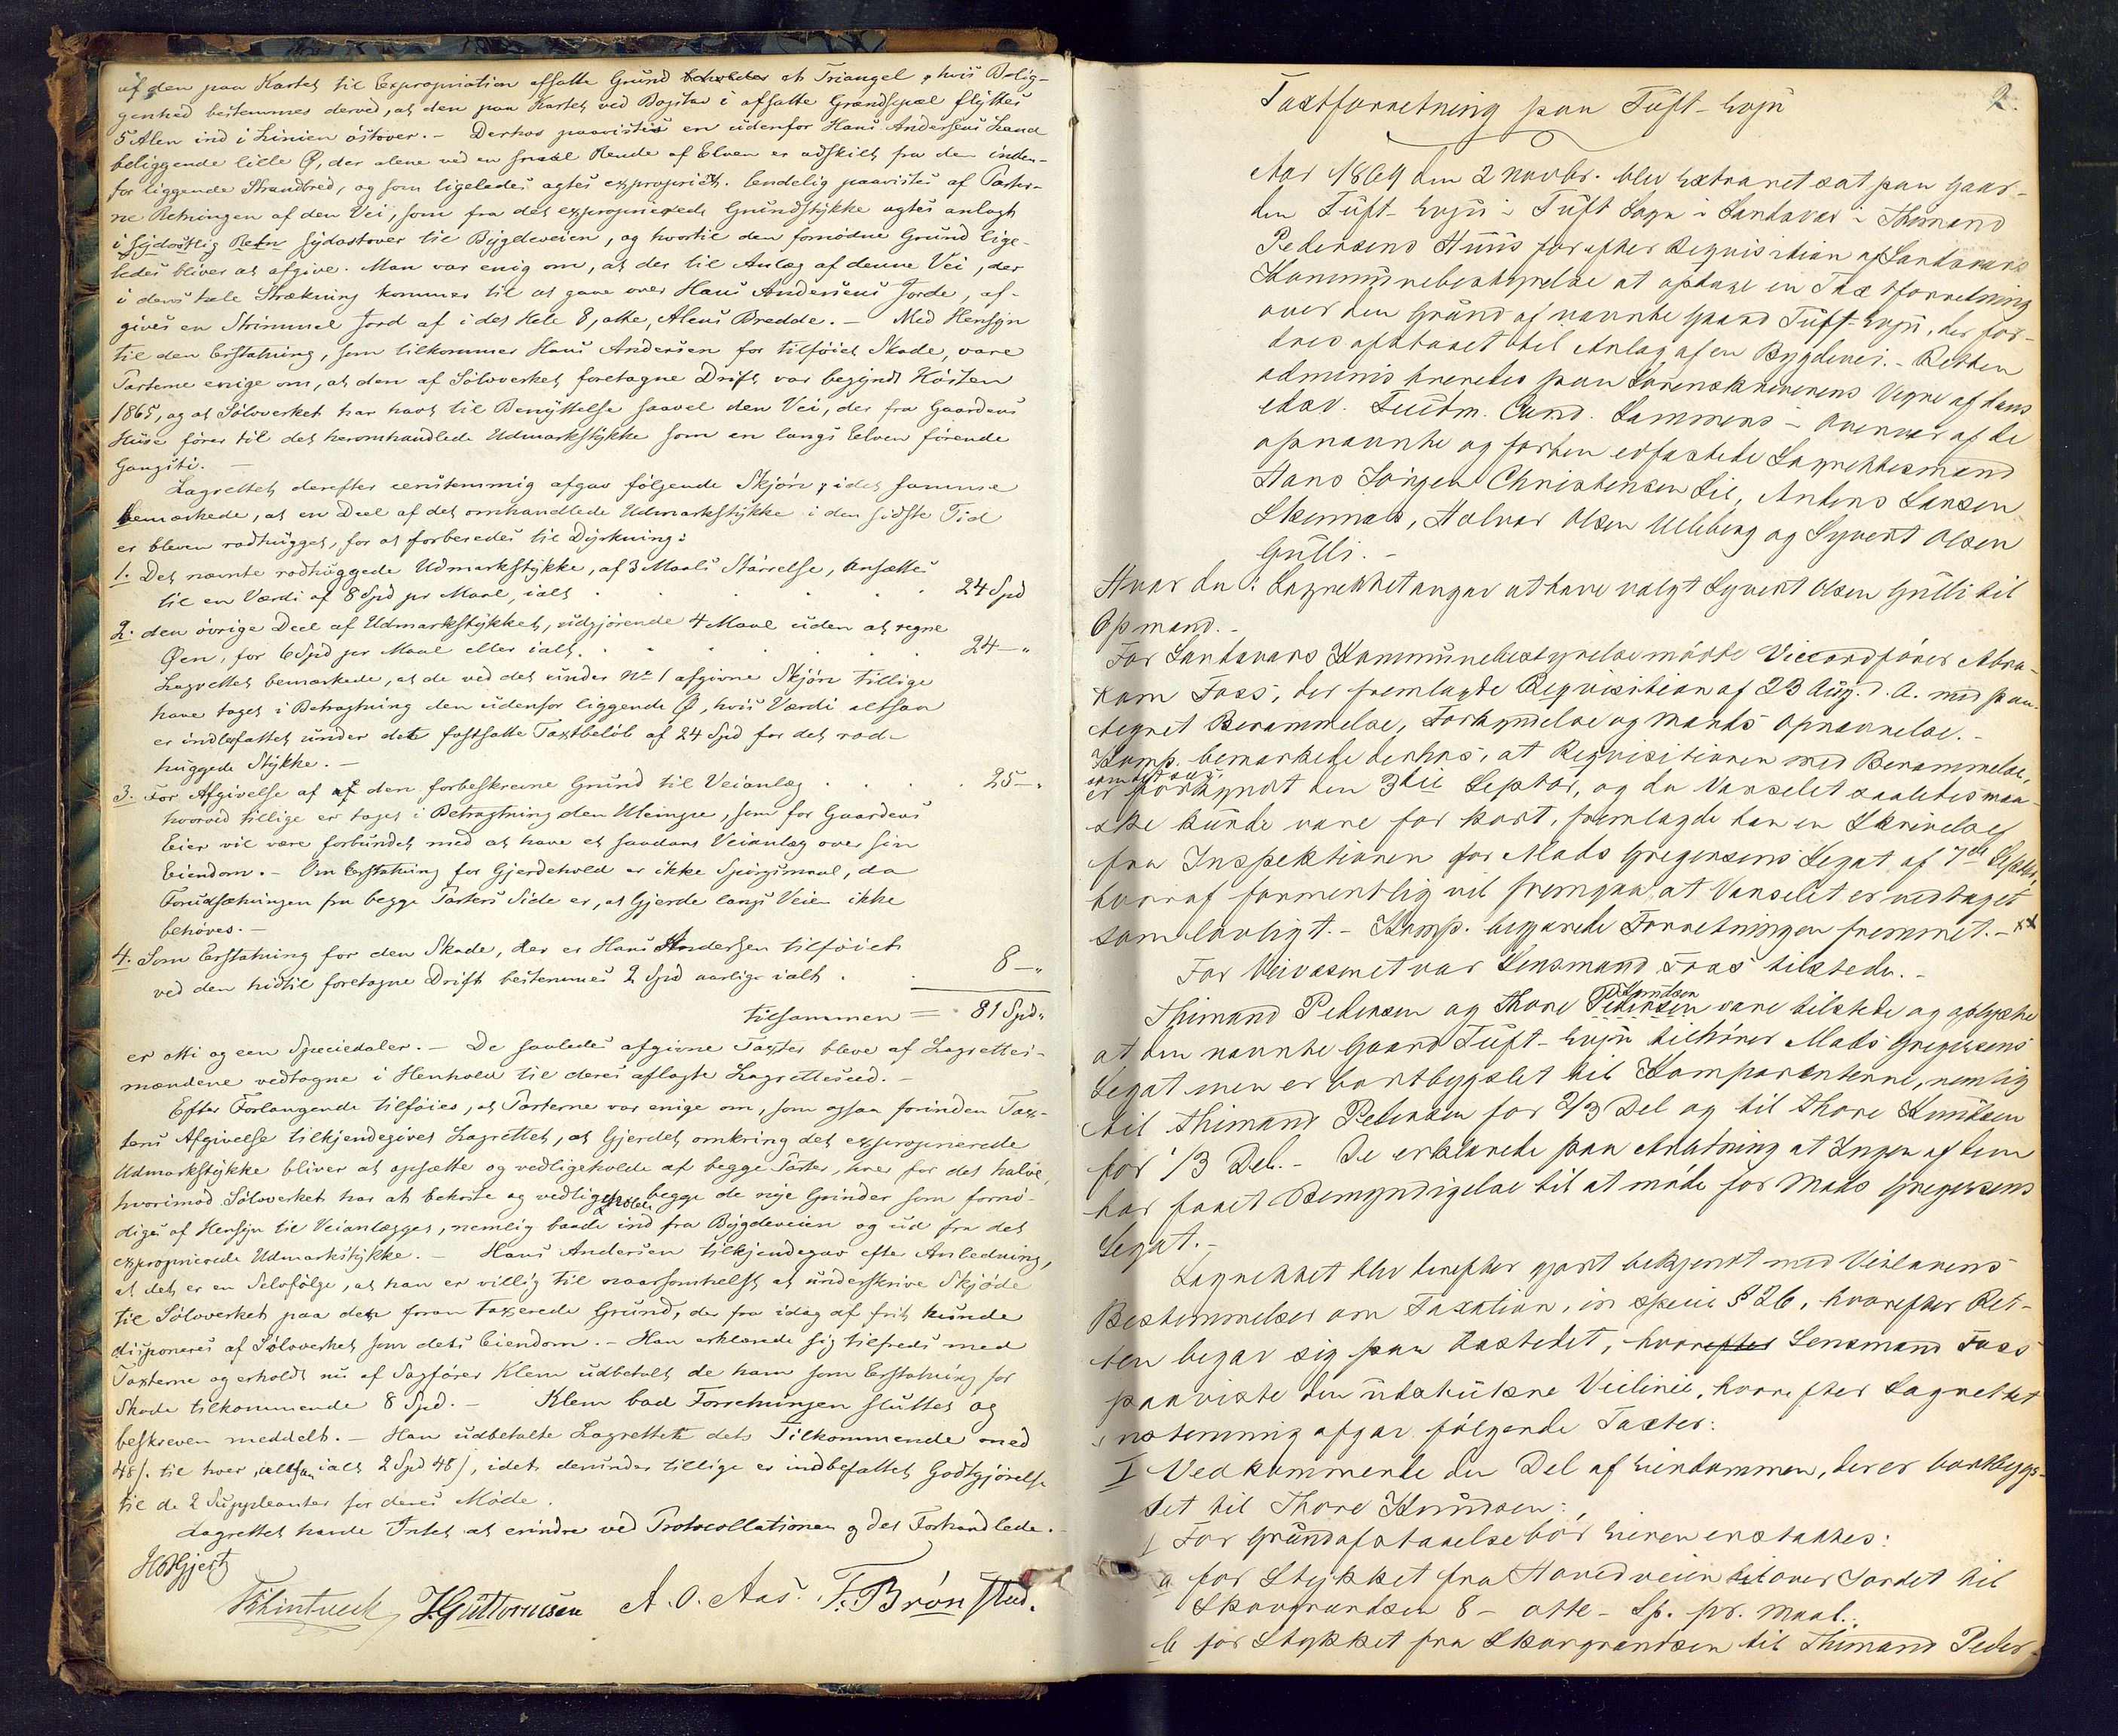 af den paa Kartet til Expropriation afsatte Grund beholder et Triangel, hvis Belig-
genhed bestemmes derved, at den paa Kartet ved Bogstav i afsatte Grændsepæl flyttes
5 Alen ind i Linien østover. – Derhos paavistes en udenfor Hans Andersens Land
beliggende lille Ø, der alene ved en smal Rende af Elven er adskilt fra den inden-
for liggende Strandbred, og som ligeledes agtes exproprieret. Endelig paavistes af Parter-
ne Retningen af den Vei, som fra det exproprierede Grundstykke agtes anlagt
i sydøstlig Retn sydostover til Bygdeveien, og hvortil den fornødne Grund lige-
ledes bliver at afgive. Man var enig om, at der til Anlæg af denne Vei, der
i dens hele Strækning kommer til at gaae over Hans Andersens Jorde, af-
gives en Strimmel Jord af i det Hele 8, otte, Alens Bredde. – Med Hensyn
til den Erstatning, som tilkommer Hans Andersen for tilføiet Skade, vare
Parterne enige om, at den af Sølvverket foretagne Drift var begyndt Høsten
1865, og at Sølvverket har havt til Benyttelse saavel den Vei, der fra Gaardens
Huse fører til det heromhandlede Udmarkstykke som en langs Elven førende
Gangsti. –
Lagrettet derefter eenstemmig afgav følgende Skjøn, idet samme
bemærkede, at en Deel af det omhandlede Udmarkstykke i den sidste Tid
er bleven rodhugget, for at forberedes til Dyrkning:
1. Det nævnte rodhuggede Udmarkstykke, af 3 Maals Størrelse, ansættes
til en Værdi af 8 Spd pr Maal, ialt . . . . . 24 Spd
2. den øvrige Deel af Udmarkstykket, udgjørende 4 Maal uden at regne
Øen, for 6 Spd pr Maal eller ialt . . . . . 24 – "
Lagrettet bemærkede, at de ved det under No 1 afgivne Skjøn tillige
have taget i Betragtning den udenfor liggende Ø, hvis Værdi altsaa
er indbefattet under det fastsatte Taxtbeløb af 24 Spd for det rod-
huggede Stykke. –
3. For Afgivelse af af den forbeskrevne Grund til Veianlæg . . . 25 – "
hvorved tillige er taget i Betragtning den Ulempe, som for Gaardens
Eier vil være forbundet med at have et saadant Veianlæg over sin
Eiendom. – Om Erstatning for Gjerdehold er ikke Spørgsmaal, da
Forudsætningen fra begge Parters Side er, at Gjerde langs Veien ikke
behøves. –
4. Som Erstatning for den Skade, der er Hans Andersen tilføiet
ved den hidtil foretagne Drift bestemmes 2 Spd aarlig ialt . . 8 – "
tilsammen = 81 Spd "
er otti og een Speciedaler. – De saaledes afgivne Taxter bleve af Lagrettes-
mændene vedtagne i Henhold til deres aflagte Lagretteseed. –
Efter Forlangende tilføies, at Parterne var enige om, som ogsaa forinden Tax-
tens Afgivelse tilkjendegives Lagrettet, at Gjerdet omkring det exproprierede
Udmarkstykke bliver at opsætte og vedligeholde af begge Parter, hver for det halve,
hvorimod Sølvverket har at bekoste og vedligeholde begge de nye Grinder som fornø-
diges af Hensyn til Veianlægget, nemlig baade ind fra Bygdeveien og ud fra det
exproprierede Udmarkstykke. – Hans Andersen tilkjendegav efter Anledning,
at det er en Selvfølge, at han er villig til naarsomhelst at underskrive Skjøde
til Sølvverket paa den foran taxerede Grund, der fra idag af frit kunde
disponeres af Sølvverket som dets Eiendom. – Han erklærede sig tilfreds med
Taxterne og erholdt nu af Sagfører Klem udbetalt de ham som Erstatning for
Skade tilkommende 8 Spd. – Klem bad Forretningen sluttet og
beskreven meddelt. – Han udbetalte Lagrettet dets Tilkommende med
48 s. til hver, altsaa ialt 2 Spd 48 s, idet derunder tillige er indbefattet Godtgjørelse
til de 2 Suppleanter for deres Møde.
Lagrettet havde Intet at erindre ved Protocollationen og det Forhandlede.
H Gjert
J. Guttormsen A. O. Aas. F. Brønsted.
2.
Taxtforretning paa Tuft-Eyu
Aar 1869 den 2 Novbr. blev Extraret sat paa Gaar-
den Tuft-Eyu i Tuft Sogn i Sandsvær i Thimand
Pedersens Huus for efter Requisition af Sandsværs
Kommunebestyrelse at optage en Taxtforretning
over den Grund af nævnte Gaard Tuft-Eyu, der for-
dres afstaaet til Anlæg af en Bygdevei. – Retten
administreredes paa Sorenskriverens Vegne af hans
edsv. Fuldm. Cand. Lammers – Overvær af de
opnævnte og forhen edfæstede Lagrettesmænd
Hans Jørgen Christensen Lie, Antons Larsen
Skennes, Halvor Olsen Ulleberg og Syvert Olsen
Gulli. –
Hvor da: Lagrettet angav at have valgt Syvert Olsen Gulli til
Opmand. –
For Sandsværs Kommunebestyrelse mødte Viceordfører Abra-
ham Foss, der fremlagde Requisition af 23 Aug. d. A. med paa-
tegnet Berammelse, Forkyndelse og Mænds Opnævnelse. –
Komp. bemærkede derhos, at Requisitionen med Berammelse,
er forkyndt den 3die Septbr, og da Varselet saaledes maa-
ske kunde være for kort, fremlagde han en Skrivelse
fra Inspektionen for Mads Gregersens Legat af 7de Septbr,
hvoraf formentlig vil fremgaa, at Varselet er vedtaget
som lovligt. – Komp. begjærede Forretningen fremmet. –
For Veivæsenet var Lensmand Foss tilstede. –
Thimand Pedersen og Thore Pedersen Knudsen vare tilstede og oplyste
at den nævnte Gaard Tuft-Eyu tilhører Mads Gregersens
Legat men er bortbygslet til Komparenterne, nemlig
til Thimand Pedersen for 2/3 Del og til Thore Knudsen
for 1/3 Del. – De erklærede paa Anledning at Ingen af dem
har faaet Bemyndigelse til at møde for Mads Gregersens
Legat. –
Lagrettet blev derefter gjort bekjendt med Veilovens
Bestemmelser om Taxation, in specie § 26, hvorefter Ret-
ten begav sig paa Aastedet, hvorefter Lensmand Foss
paaviste den udstukne Veilinie, hvorefter Lagrettet
enstemmig afgav følgende Taxter:
I Vedkommende den Del af Eiendommen, der er bortbygs-
let til Thore Knudsen:
1 For Grundafstaaelse bør Eieren erstattes:
a for Stykket fra Hovedveien til over Jordet til
Skovgrændsen 8 – otte – Sp. pr. Maal.
b for Stykket fra Skovgrændsen til Thimand Peder-